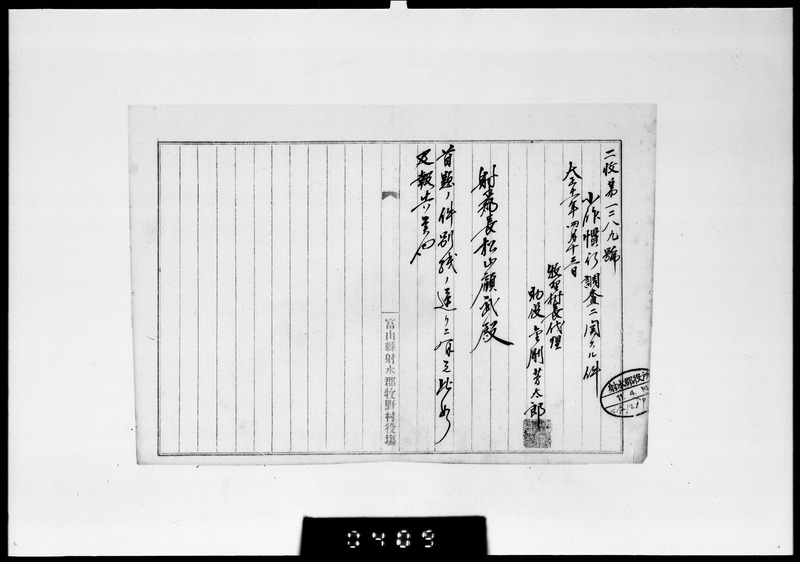 二收第一三八九號
小作慣行調査ニ関スル件
大正十一年四月十三日
牧野村長代理
助役 金剛芳太郎
射水郡長松山顧武殿
首題ノ件別紙ノ通リニ有之此如
及報告候也
富山縣射水郡牧野村役場
射水郡役所
11.4.
0409